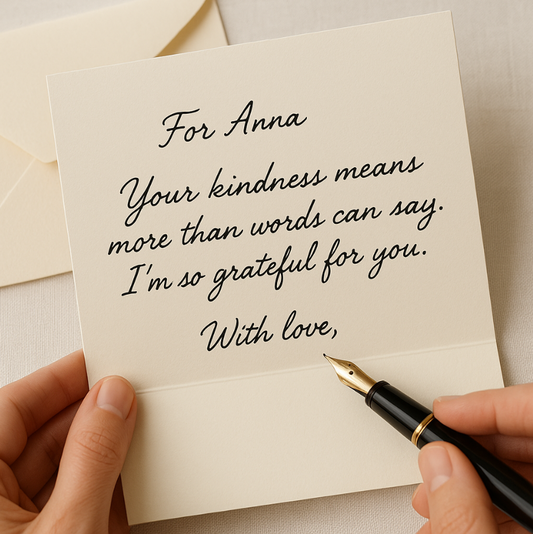 For Anna
Your kindness means
more than words can say.
I'm so grateful for you.
With love,